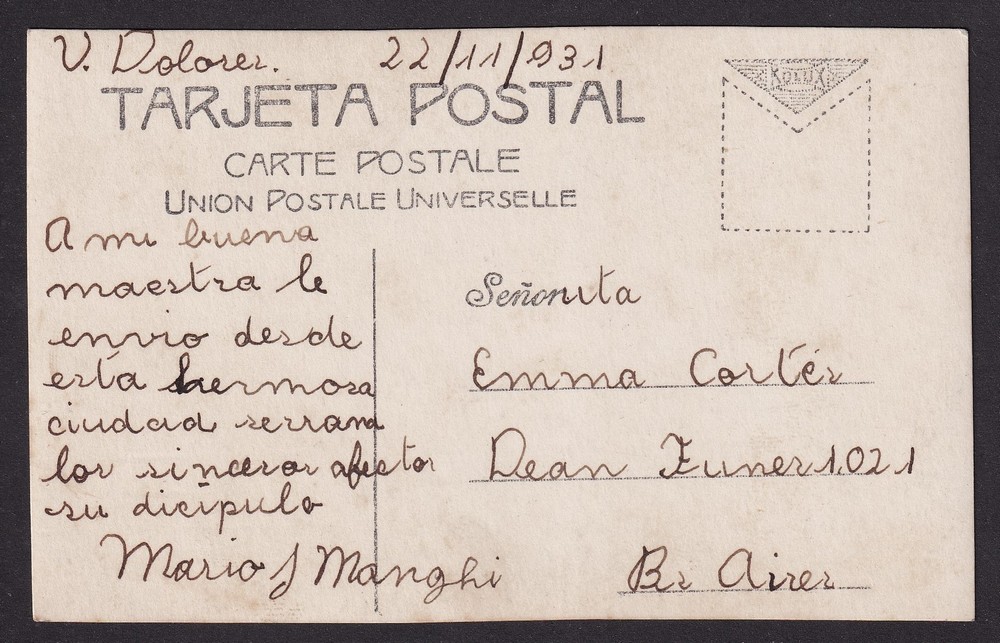 V. Dolores. 22/11/931
TARJETA POSTAL
CARTE POSTALE
UNION POSTALE UNIVERSELLE
KOLUX
A mi buena
maestra le
envio desde
esta hermosa
ciudad serrana
los sinceros afectos
su dicípulo
Mario J Manghi
Señorita
Emma Cortés
Dean Funes 1.021
Bs Aires